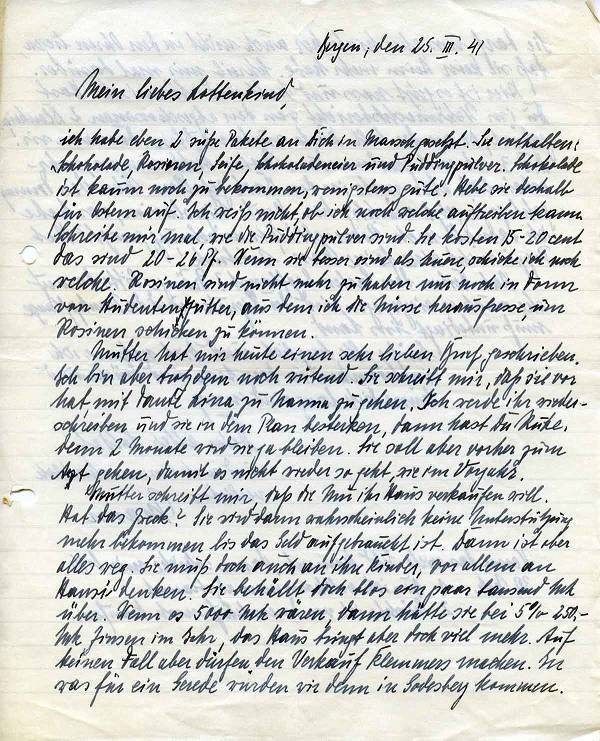 Bergen, den 25. III. 41
Mein liebes Lottenkind,
ich habe eben 2 süße Pakete an Dich in Marsch gesetzt. Sie enthalten:
Schokolade, Rosinen, Seife, Schokoladeneier und Puddingpulver. Schokolade
ist kaum noch zu bekommen, wenigstens gute. Hebe sie deshalb
für Ostern auf. Ich weiß nicht, ob ich noch welche auftreiben kann.
Schreibe mir mal, wie die Puddingpulver sind. Sie kosten 15-20 cent
das sind 20-26 Pf. Wenn sie besser sind als eure, schicke ich noch
welche. Rosinen sind nicht mehr zu haben nur noch in dann
von Studentenfutter, aus dem ich die Nüsse herausfresse, um
Rosinen schicken zu können.
Mutter hat mir heute einen sehr lieben Brief geschrieben.
Ich bin aber trotzdem noch wütend. Sie schreibt mir, daß sie vor
hat, mit Tante Lina zu Hanna zu gehen. Ich werde ihr wieder-
schreiben und sie in dem Plan bestärken, dann hast Du Ruhe,
denn 2 Monate wird sie ja bleiben. Sie soll aber vorher zum
Arzt gehen, damit es nicht wieder so geht, wie im Vorjahr.
Mutter schreibt mir, daß die Mu ihr Haus verkaufen will.
Hat das Zweck? Sie wird dann wahrscheinlich keine Unterstützung
mehr bekommen bis das Geld aufgebraucht ist. Dann ist aber
alles weg. Sie muß doch auch an ihre Kinder, vor allem an
Hansi denken. Sie behällt doch blos ein paar tausend Mk
über. Wenn es 5000 Mk wären, dann hätte sie bei 5% 250,-
Mk Zinsen im Jahr, das Haus bringt aber doch viel mehr. Auf
keinen Fall aber dürfen den Verkauf Klemmers machen. In
was für ein Gerede würden wir denn in Godesberg kommen.